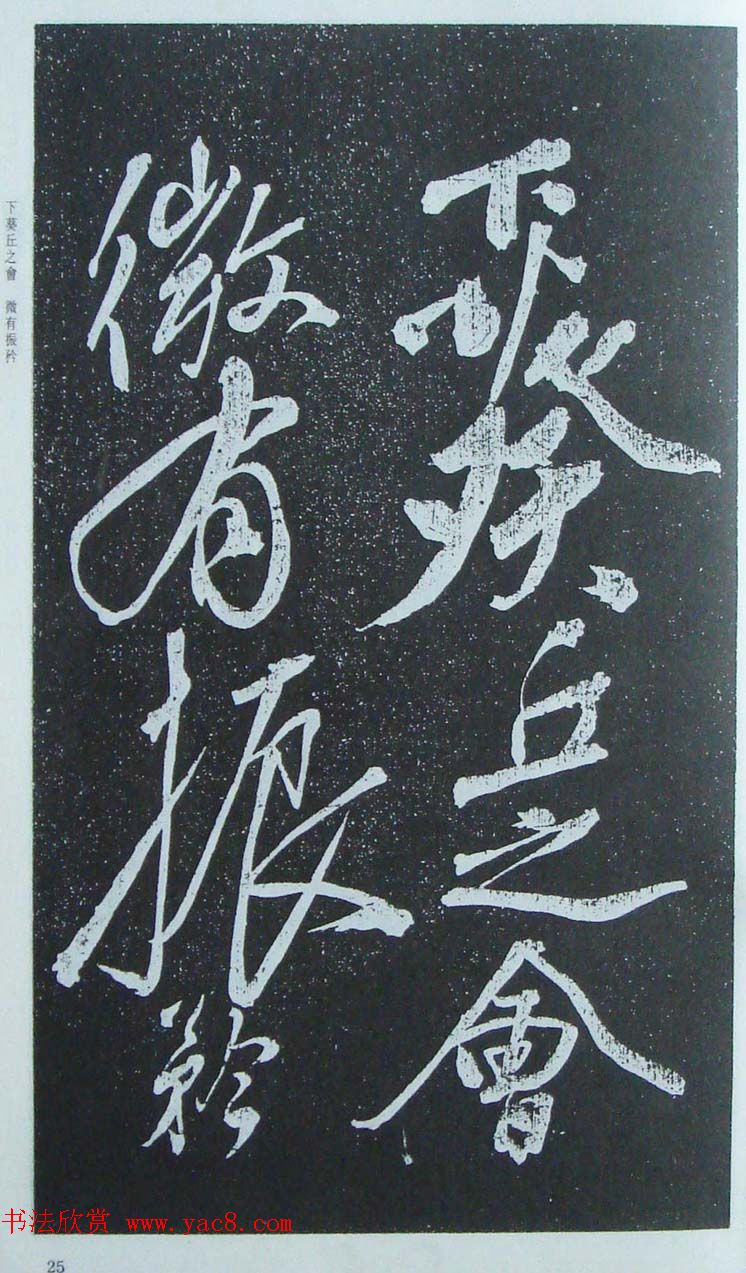 下葵丘之會
微有振矜
下葵丘之會 微有振矜
书法欣赏 www.yac8.com
25